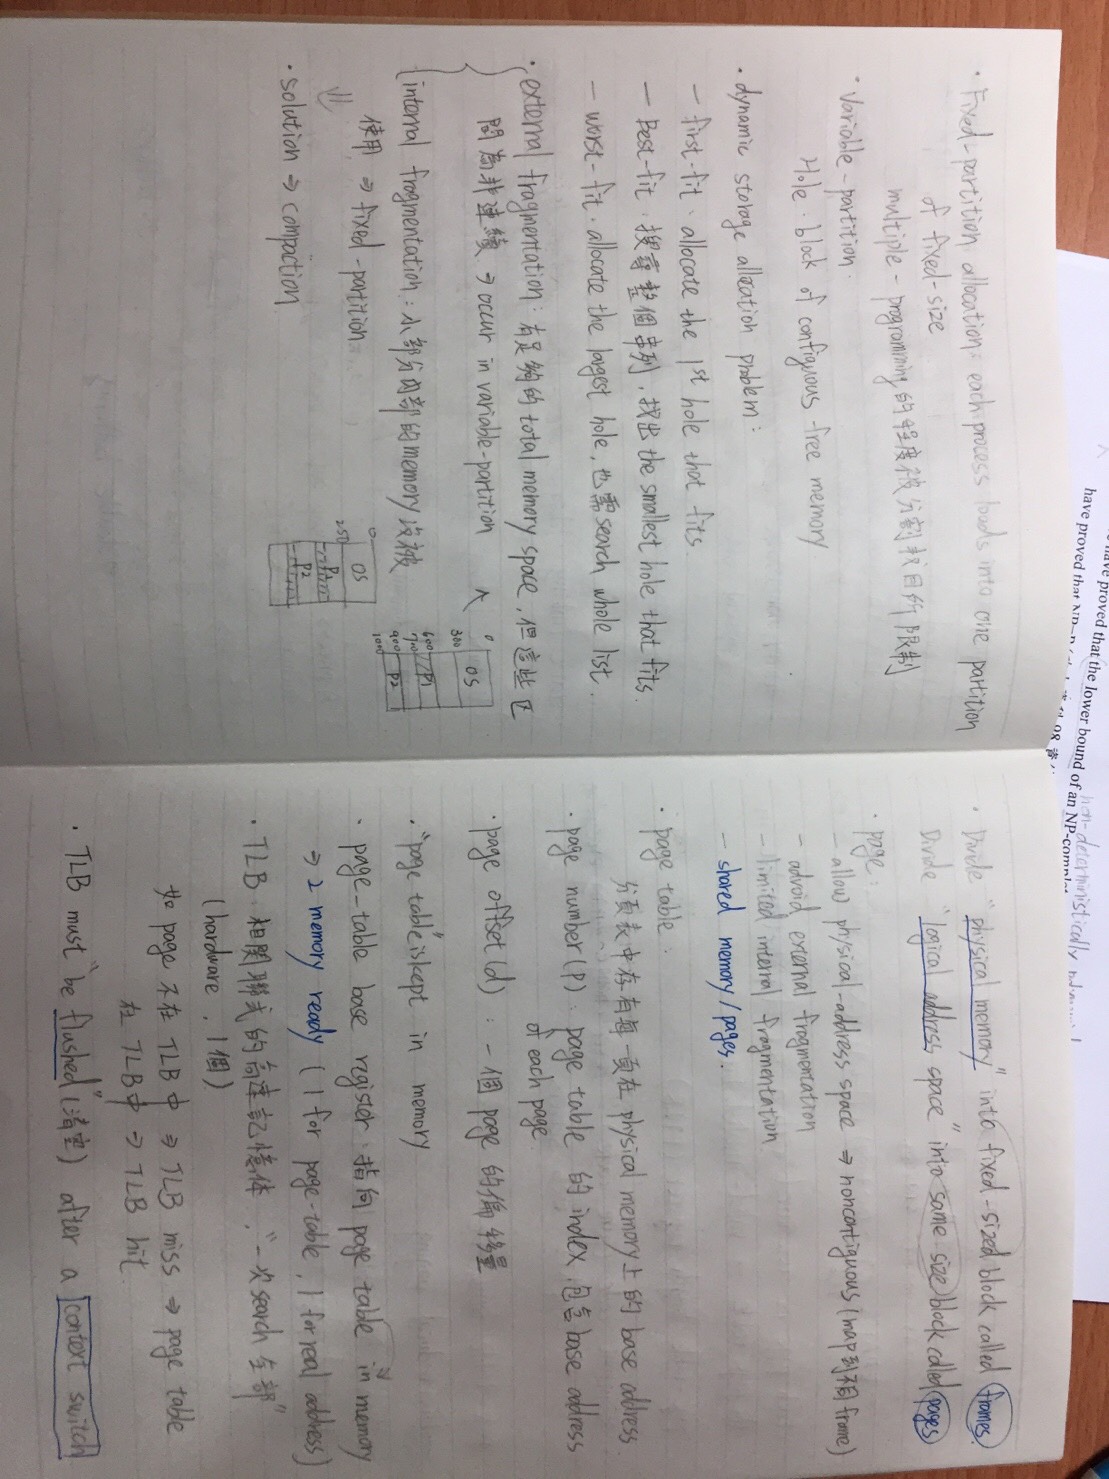 · Fixed-partition allocation: each process loads into one partition
of fixed-size
multiple-programming 的程度被分割數目所限制
· Variable-partition
Hole: block of contiguous free memory
· dynamic storage allocation problem:
- first-fit. allocate the 1st hole that fits.
- Best-fit. 搜尋整個串列, 找出 the smallest hole that fits
- worst-fit. allocate the largest hole, 也需 search whole list.
· external fragmentation: 有足夠的 total memory space, 但這些區
間為非連續 ⇒ occur in variable-partition
internal fragmentation: 小部分內部的 memory 沒被
使用, ⇒ fixed-partition
⇓
· solution ⇒ compaction
0
300
600
700
900
OS
P1
P2
0
250
OS
P1
P2
· Divide "physical memory" into fixed-sized block called frames.
Divide "logical address space" into same size block called pages
· page:
- allow physical-address space ⇒ noncontiguous (map 到 frame)
- advoid external fragmentation
- limited internal fragmentation.
- shared memory/pages.
· page table:
分頁表中存有每一頁在 physical memory 上的 base address.
· page number (P): page table 的 index, 包含 base address
of each page
· page offset (d): 一個 page 的偏移量
· "page table" is kept in memory
· page-table base register: 指向 page table in memory
⇒ 2 memory ready (1 for page-table, 1 for real address)
· TLB: 相關聯式的高速記憶体, "一次 search 全部"
(hardware, 1個)
如 page 不在 TLB 中 ⇒ TLB miss ⇒ page table
在 TLB 中 ⇒ TLB hit.
· TLB must "be flushed" (清空) after a context switch
have proved that the lower bound of an NP-complet
non-deterministically
have proved that